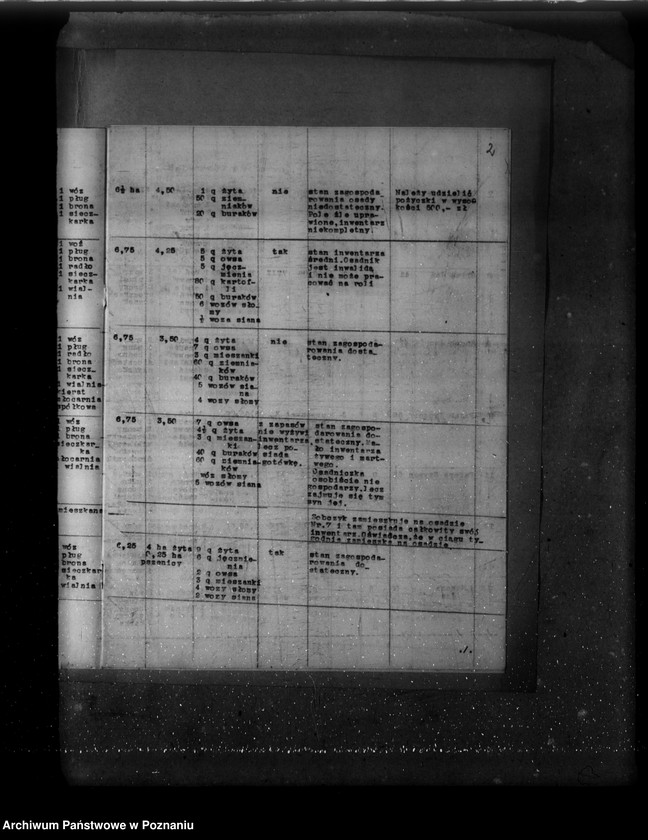 2
1 wóz
1 pług
1 brona
1 siecz-
karka
6½ ha
4,50
1 q żyta
50 q ziem-
niaków
20 q buraków
nie
stan zagospoda-
rowania osady
niedostateczny.
Pole źle upra-
wione, inwentarz
niekompletny.
Należy udzielić
pożyczki w wyso-
kości 500,- zł
1 wóz
1 pług
1 brona
1 radło
1 siecz-
karka
1 wial-
nia
6,75
4,25
5 q żyta
5 q owsa
5 q jęcz-
mienia
80 q kartof-
li
50 q buraków
6 wozów sło-
my
½ woza siana
tak
stan inwentarza
średni. Osadnik
jest inwalidą
i nie może pra-
cować na roli
1 wóz
1 pług
1 radło
1 brona
1 siecz-
karka
1 wialnia
kierat
młocarnia
spółkowa
6,75
3,50
4 q żyta
7 q owsa
3 q mieszanki
60 q ziemnia-
ków
40 q buraków
5 wozów sia-
na
4 wozy słomy
nie
stan zagospoda-
rowania dosta-
teczny.
wóz
pług
brona
sieczkar-
ka
młocarnia
wialnia
6,75
3,50
7 q owsa
4½ q żyta
3 q mieszan-
ki
40 q buraków
60 q ziemnia-
ków
wóz słomy
5 wozów siana
z zapasów
nie wyżywi
inwentarza,
lecz po-
siada
gotówkę.
stan zagospo-
darowania do-
stateczny. Ma-
ło inwentarza
żywego i mart-
wego.
Osadniczka
osobiście nie
gospodarzy, lecz
zajmuje się tym
syn jej.
Sobczyk zamieszkuje na osadzie
Nr.7 i tam posiada całkowity swój
inwentarz. Oświadcza, że w ciągu ty-
godnia zamieszka na osadzie
wóz
pług
brona
sieczkar-
ka
wialnia
6,25
4 ha żyta
0,25 ha
pszenicy
9 q żyta
6 q jęczmie-
nia
2 q owsa
3 q mieszanki
4 wozy słomy
2 wozy siana
tak
stan zagospoda-
rowania do-
stateczny.
./.
Archiwum Państwowe w Poznaniu